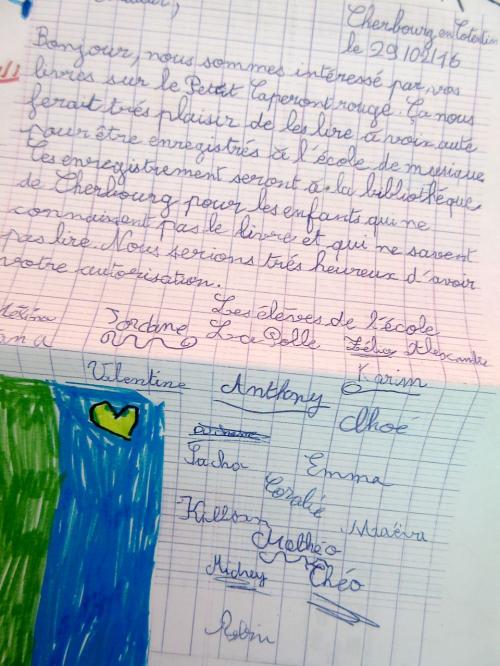 Cherbourg en Cotentin
le 29/02/16
Bonjour, nous sommes intéressé par vos
livres sur le Petit Caperont rouge. Ca nous
ferait trés plaisir de les lire à voix aute
pour être enregistrés à l'école de musique
Ces enregistrement seront à la bibliothéque
de Cherbourg pour les enfants qui ne
connaissent pas le livre et qui ne savent
pas lire. Nous serions trés heureux d'avoir
votre autorisation.
Les éléves de l'école
Jordane La Polle Alexandre
Valentine Anthony Karim
Chloé
Sacha Emma
Coralie
Killian Maëva
Mathéo
Théo
Robin